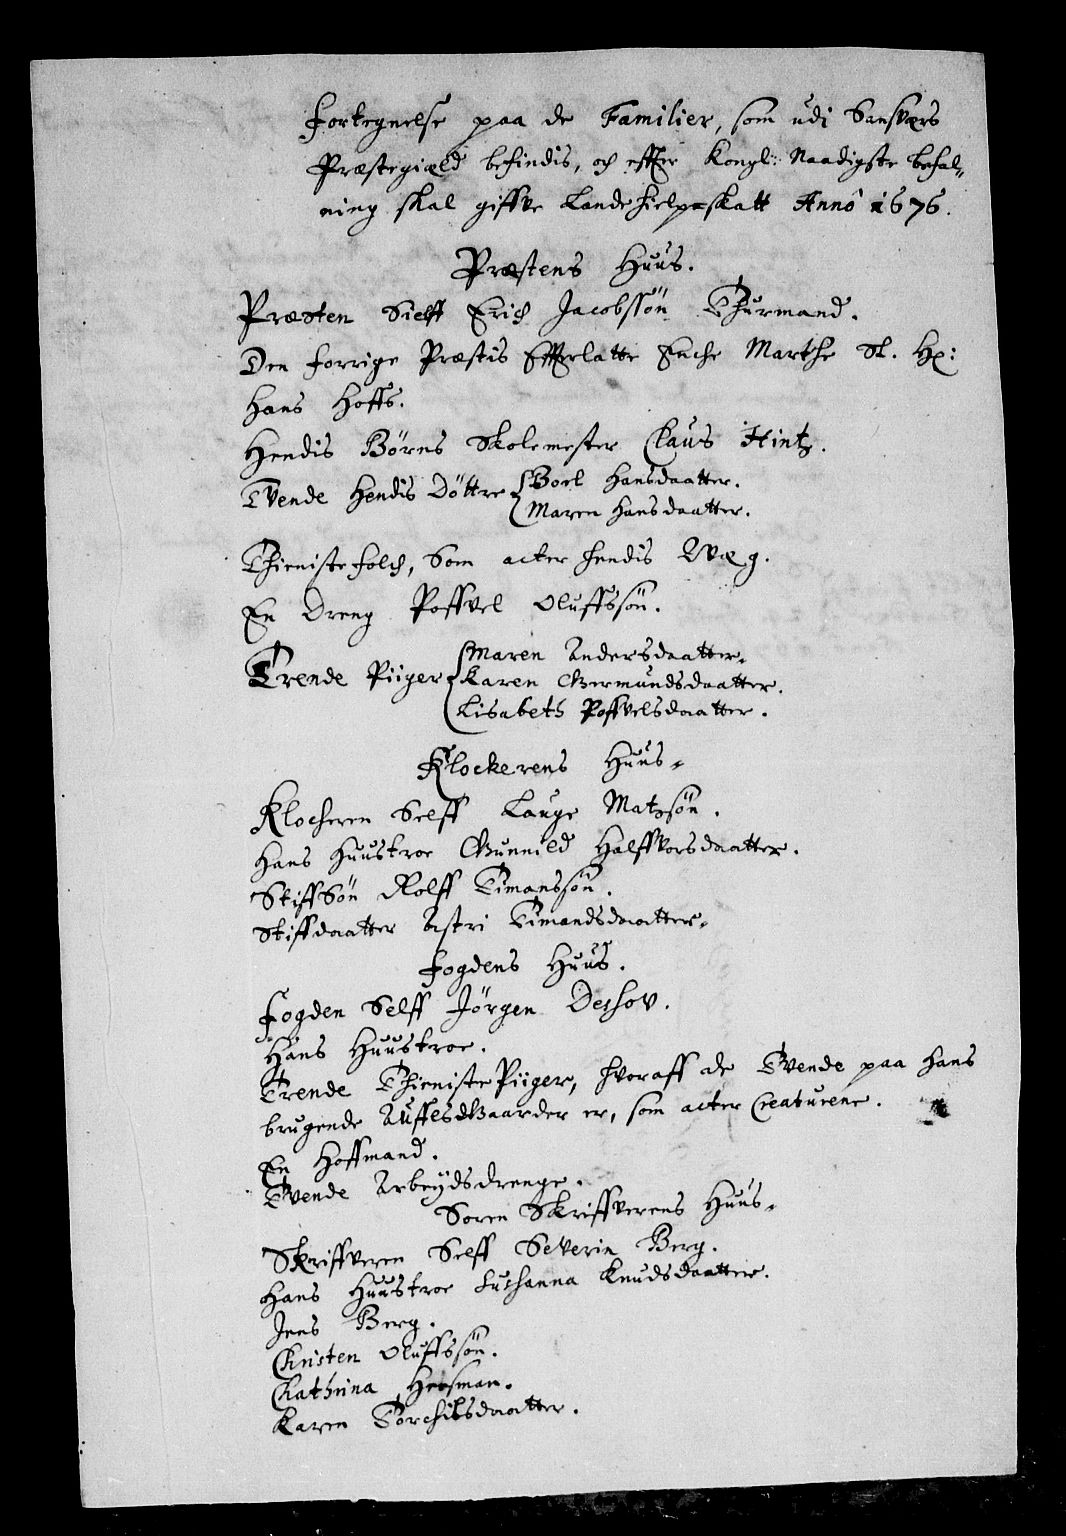 Fortegnelse paa de Familier, som udi Sandsværs
Præstegiæld befindis, och effter Kongl: Naadigste befal-
ning skal giffve Landehielpeskatt Anno 1676.
Præstens Huus.
Præsten Sielff Erich Jacobssøn Thurmand.
Den forrige Præstis Effterlatte Enche Marthe Sl. Hr:
Hans Hoffs.
Hendis Børns Skolemester Claus Hintz.
Tvende hendis Døttre Boel Hansdaatter.
Maren Hansdaatter.
Thieniste folch, Som acter hendis Wæg.
En Dreng Poffvel Oluffssøn.
Maren Andersdaatter.
Trende Piiger Karen Germundsdaatter.
Lisabeth Poffvelsdaatter.
Klockerens Huus.
Klocheren Selff Lauge Matzsøn.
Hans Huustroe Gunnild Halffvorsdaatter.
StiffSøn Rolff Timanssøn.
Stiffdaatter Astri Timandsdaatter.
Fogdens Huus.
Fogden Selff Jørgen Dechov.
Hans Huustroe.
Trende ThienistePiiger, hvoraff de Tvende paa hans
brugende AuffelsGaarder er, som acter Creaturene.
En Hoffmand.
Tvende Arbeydsdrenge.
Soren Skriffverens Huus.
Skriffveren Selff Severin Berg.
Hans Huustroe Susanna Knudsdaatter.
Jens Berg.
Christen Oluffssøn.
Cathrina Hersman.
Karen Torchilsdaatter.